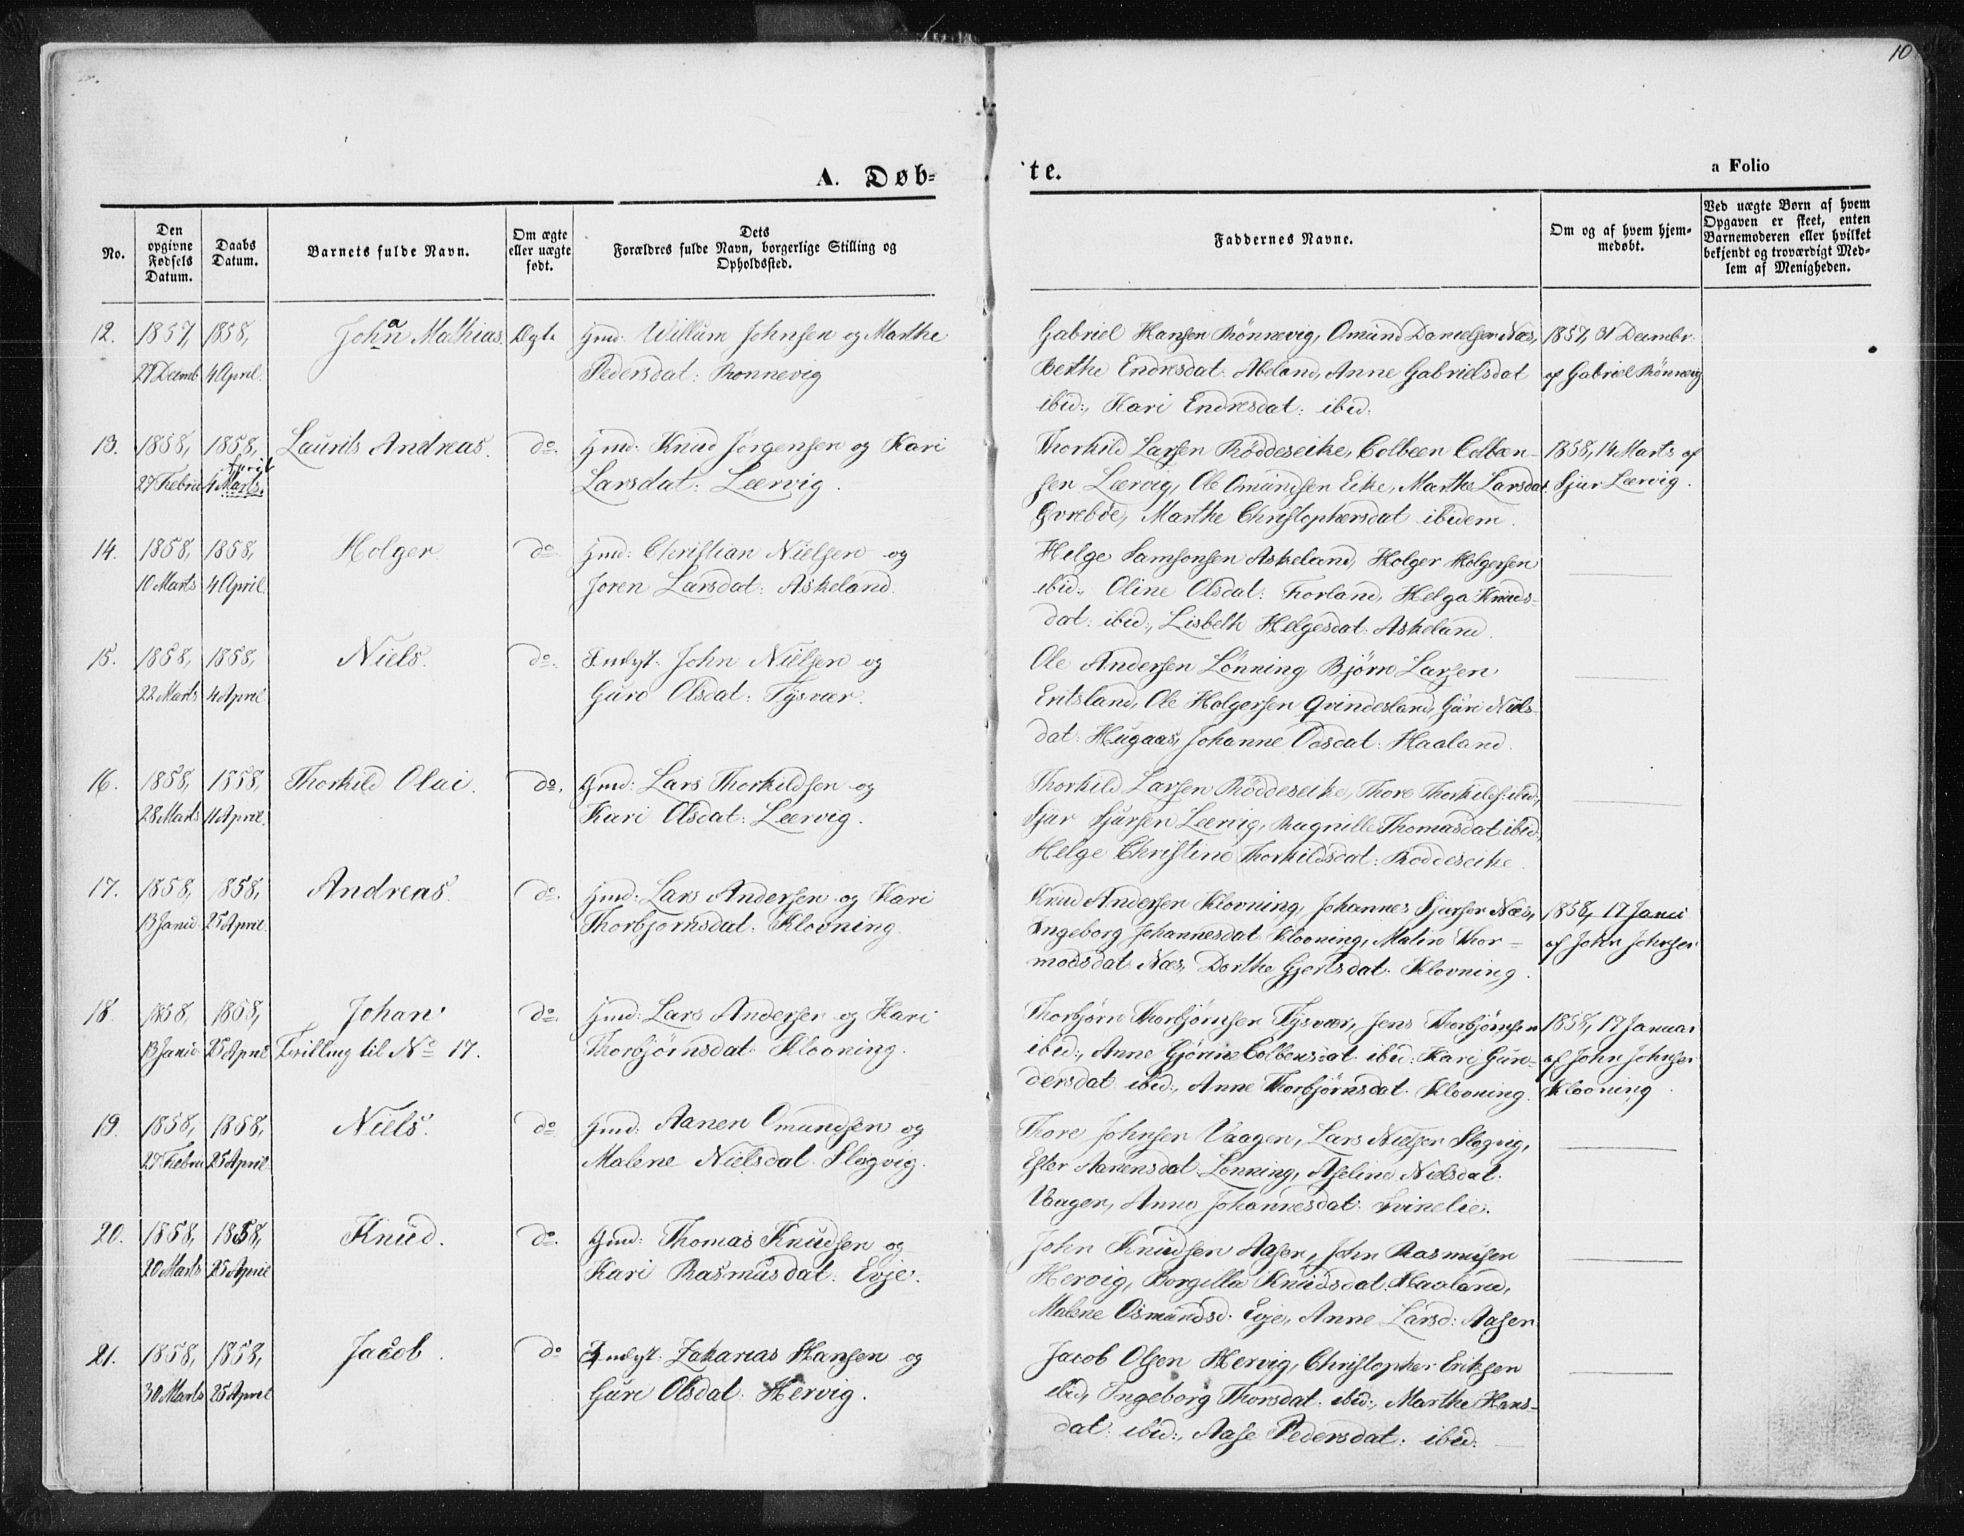 10
A. Døb=
te.
a Folio
No.
Den opgivne Fødsels Datum.
Daabs Datum.
Barnets fulde Navn.
Om ægte eller uægte født.
Dets Forældres fulde Navn, borgerlige Stilling og Opholdssted.
Faddernes Navne.
Om og af hvem hjemmedøbt.
Ved uægte Børn af hvem Opgaven er skeet, enten Barnemoderen eller hvilket bekjendt og troværdigt Medlem af Menigheden.
12. 1857, 1858, Johan Mathias. Ægte Hmd: Willum Johnsen og Marthe
27 Decemb 4 April. Pedersdat: Rønnevig
Gabriel Hansen Rønnevig, Omund Danielsen Næs, 1857, 31 Decembr.
Berthe Endresdat. Abeland, Anne Gabrielsdat af Gabriel Rønnevig
ibid:, Kari Endresdat: ibid:
13. 1858, 1858, Laurits Andreas. do. Hmd: Knud Jørgensen og Kari
27 Febru 4 Marts. April Larsdat: Leervig.
Thorkild Larsen Røddeseike, Colbeen Colben- 1858, 14 Marts af
sen Leervig, Ole Omundsen Eike, Marthe Larsdat. Sjur Leervig.
Gvrebøe, Marthe Christophersdat ibidem.
14. 1858, 1858, Holger do. Hmd: Christian Nielsen og
10 Marts 4 April. Joren Larsdat: Askeland.
Helge Samsonsen Askeland, Holger Holgersen
ibid., Oline Olsdat: Forland, Helga Knuds-
dat: ibid:, Lisbeth Helgesdat: Askeland.
15. 1858, 1858, Niels. do. Indyst: John Nielsen og
22 Marts 4 April Guro Olsdat: Tysvær.
Ole Andersen Lønning Bjørn Larsen
Eritsland, Ole Holgersen Qvindesland, Guri Niels-
dat: Hugaas, Johanne Olsdat: Haaland.
16. 1858, 1558, Thorkild Olai. do. Hmd: Lars Thorkildsen og
28 Marts 11 April. Kari Olsdat: Leervig.
Thorkild Larsen Røddeseike, Thore Thorkilds: ibid:,
Sjur Sjursen Leervig, Ragnille Thomasdat ibid:,
Helge Christine Thorkildsdat: Røddeseike.
17. 1858, 1858, Andreas. do. Hmd: Lars Andersen og Kari
13 Janu 25 April. Thorbjørnsdat. Klovning.
Knud Andersen Klovning, Johannes Sjursen Næs, 1858, 17 Janu
Ingeborg Johannesdat Klovning, Malin Thor- af John Johnsen
modsdat Næs, Dorthe Gjertsdat. Klovning.
18. 1858, 1858, Johan do. Hmd: Lars Andersen og Kari
13 Janu 25 April Tvilling til No 17. Thorbjørnsdat Klovning.
Thorbjørn Thorbjørnsen Tysvær, Jens Thorbjørnsen 1858, 17 Januar
ibid:, Anne Gjørine Colbensdat ibid: Kari Gun- af John Johnsen
dersdat ibid:, Anne Thorbjørnsdat. Klovning. Klovning.
19. 1858, 1858, Niels. do Hmd: Aanen Omundsen og
27 Febru 25 April. Malene Nielsdat Slogvig.
Thore Johnsen Vaagen, Lars Nielsen Slogvig,
Ester Aanensdat Lønning, Aseline Nielsdat.
Vaagen, Anne Johannesdat: Svinelie.
20. 1858, 1858, Knud. do. Hmd: Thomas Knudsen og
20 Marts 25 April Kari Rasmusdat: Evje.
John Knudsen Aasen, John Rasmusen
Hervig, Borgilla Knudsdat. Haaland,
Malene Osmundsd. Evje, Anne Larsd: Aasen
21. 1858, 1858, Jacob. do Indyst: Zakarias Hansen og
30 Marts 25 April Guri Olsdat: Hervig.
Jacob Olsen Hervig, Christopher Eriksen
ibid, Ingeborg Thorsdat. ibid:, Marthe Hans-
dat: ibid:, Aase Pedersdat: ibid: